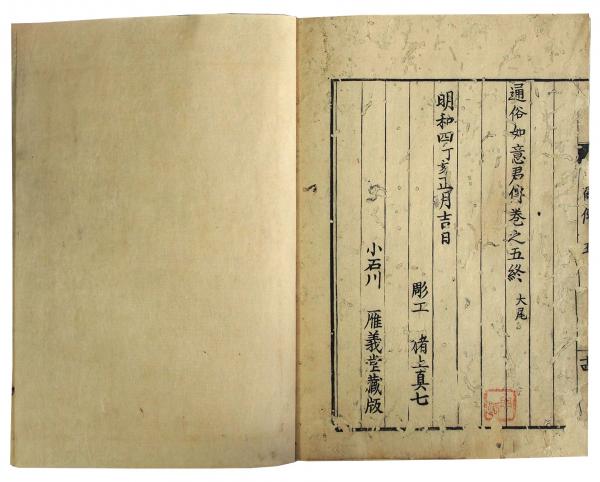 通俗如意君傳巻之五終 大尾
明和四丁亥正月吉日
彫工 猪上真七
小石川 雁義堂藏版